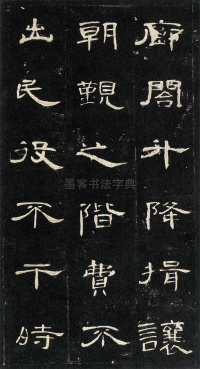 廊閣升降揖讓
朝覲之階費不
出民役不干時
墨客书法字典